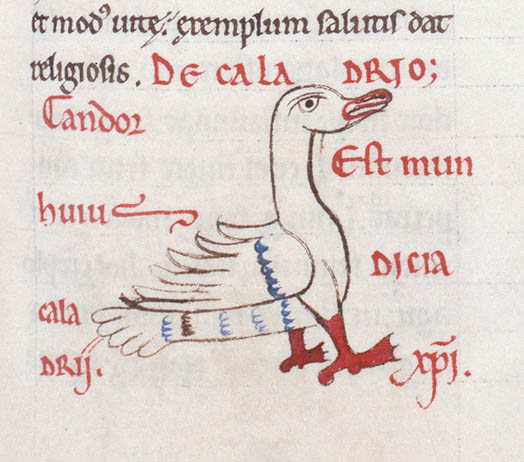 et modꝰ uite: exemplum salutis dat
religiosis. DE CALA DRIO;
Candor
Est mun
huiu
DICIA
cala
DRIJ.
xp̄i.